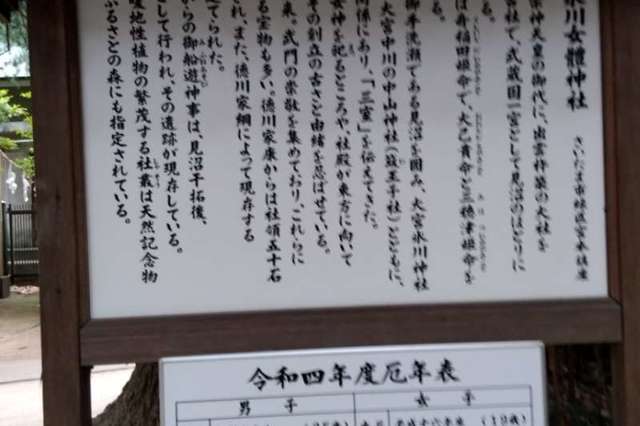 氷川女體神社
さいたま市緑区宮本鎮座
崇神天皇の御代に、出雲杵築の大社を
宮社で、武蔵国一宮として見沼のほとりに
る。
は奇稲田姫命で、大己貴命と三穂津姫命を
る。
御手洗瀬である見沼を囲み、大宮氷川神社
大宮中川の中山神社(簸王子社)とともに、
関係にあり、「三室」を伝えてきた。
女神を祀るところや、社殿が東方に向いて
その創立の古さと由緒を忍ばせている。
来。武門の崇敬を集めており、これらに
る宝物も多い。徳川家康からは社領五十石
れ、また、徳川家綱によって現存する
てられた。
からの御船遊神事は、見沼干拓後、
して行われ、その遺跡が現存している。
暖地性植物の繁茂する社叢は天然記念物
ふるさとの森にも指定されている。
令和四年度厄年表
男子 女子
(19歳)